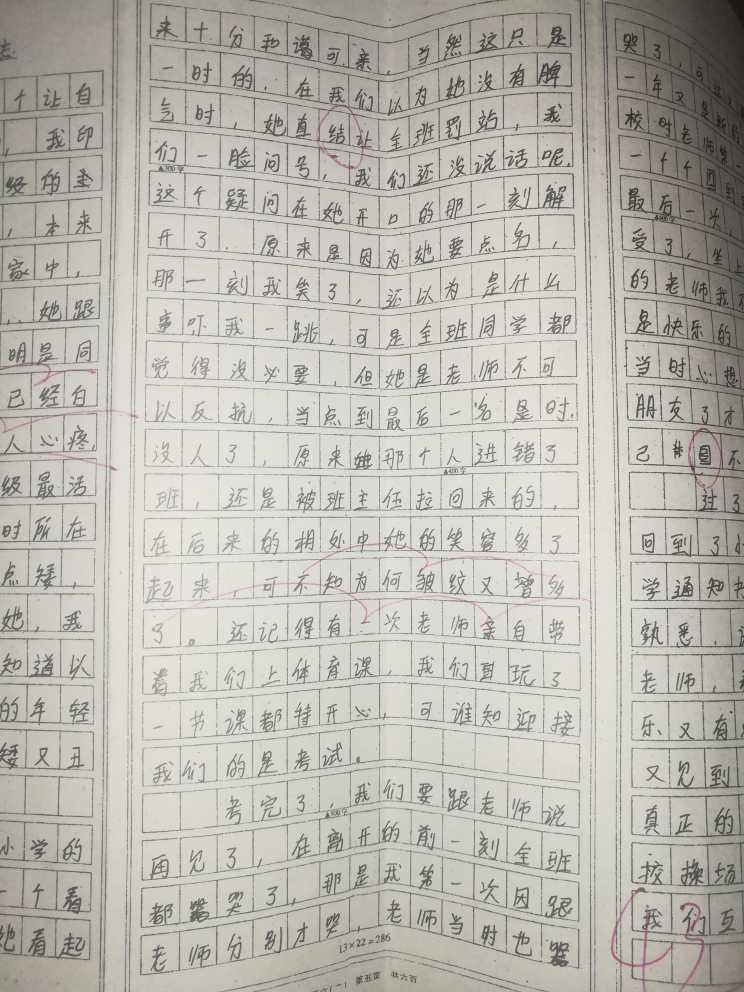 去
个让自
，我印
级的主
，本来
家中，
..她跟
明是同
已经白
人心疼，
级最活
时所在
点矮，
她，我
知道以
的年轻
矮又丑
小学的
一个看
她看起
来十分和谐可亲，当然这只是
一时的，在我们以为她没有脾
气时，她直结让全班罚站，我
们一脸问号，我们还没说话呢，
▲300字
这个疑问在她开口的那一刻解
开了．原来是因为她要点名，
那一刻我笑了，还以为是什么
事吓我一跳，可是全班同学都
觉得没必要，但她是老师不可
以反抗，当点到最后一名是时，
没人了，原来她那个人进错了
▲400字
班，还是被班主任拉回来的，
在后来的相处中她的笑容多了
起来，可不知为何皱纹又增多
了。还记得有一次老师亲自带
着我们上体育课，我们玩了
一节课都特开心，可谁知迎接
我们的是考试。
考完了，我们要跟老师说
▲500字
再见了，在离开的前一刻全班
都哭了，那是我第一次因跟
老师分别才哭，老师当时也
13×22=286
（一） 第五面 共六页
哭了，可
一年又是
校时老师第一
一个个回到
最后一次，
受了，坐上
的老师我
是快乐的
当时心想
朋友了才
己 不
过了
回到了小
学通知书
熟悉，
老师，
乐又有
又见到
真正的
校操场
我们互
43